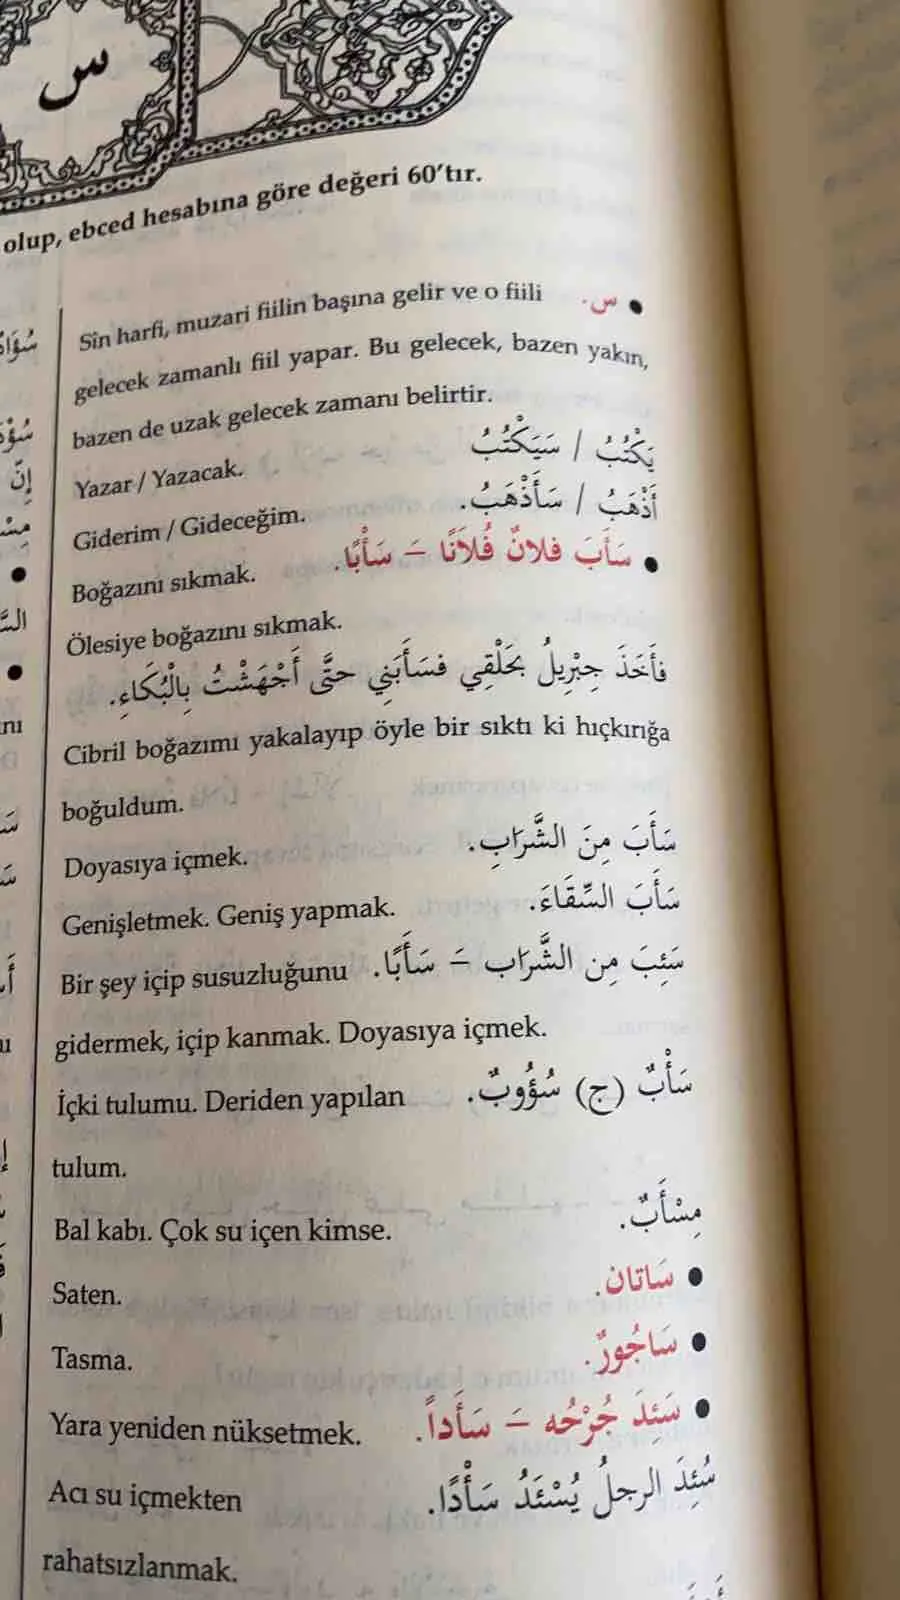 س
olup, ebced hesabına göre değeri 60'tır.
• س. Sîn harfi, muzari fiilin başına gelir ve o fiili
gelecek zamanlı fiil yapar. Bu gelecek, bazen yakın,
bazen de uzak gelecek zamanı belirtir.
يَكْتُبُ / سَيَكْتُبُ Yazar / Yazacak.
أَذْهَبُ / سَأَذْهَبُ. Giderim / Gideceğim.
• سَأَبَ فلانٌ فُلَانًا – سَأْبًا. Boğazını sıkmak.
Ölesiye boğazını sıkmak.
فأَخَذَ جِبْرِيلُ بحَلْقِي فسَأَبَنِي حتَّى أَجْهَشْتُ بِالْبُكَاءِ.
Cibril boğazımı yakalayıp öyle bir sıktı ki hıçkırığa
boğuldum.
سَأَبَ مِنَ الشَّرَابِ. Doyasıya içmek.
سَأَبَ السِّقَاءَ. Genişletmek. Geniş yapmak.
سَئِبَ مِن الشَّرَاب – سَأَبًا. Bir şey içip susuzluğunu
gidermek, içip kanmak. Doyasıya içmek.
سَأْبٌ (ج) سُؤُوبٌ. İçki tulumu. Deriden yapılan
tulum.
مِسْأَبٌ. Bal kabı. Çok su içen kimse.
• سَاتان. Saten.
• سَاجُورٌ. Tasma.
• سَئِدَ جُرْحُه – سَأَداً. Yara yeniden nüksetmek.
سُئِدَ الرجلُ يُسْئَدُ سَأْدًا. Acı su içmekten
rahatsızlanmak.